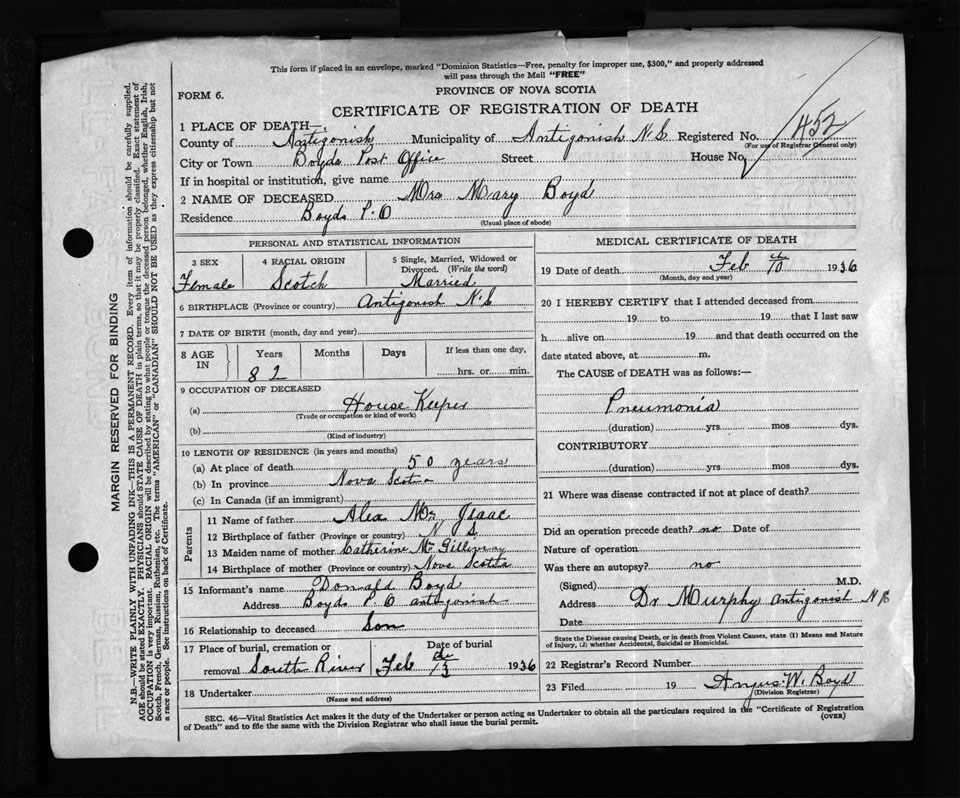 This form if placed in an envelope, marked "Dominion Statistics—Free, penalty for improper use, $300," and properly addressed
will pass through the Mail "FREE"
PROVINCE OF NOVA SCOTIA
FORM 6.
CERTIFICATE OF REGISTRATION OF DEATH
1 PLACE OF DEATH—
County of Antigonish Municipality of Antigonish N.S. Registered No. 452
(For use of Registrar General only)
City or Town Boyds Post Office Street House No
If in hospital or institution, give name
2 NAME OF DECEASED Mrs Mary Boyd
Residence Boyds P.O
(Usual place of abode)
PERSONAL AND STATISTICAL INFORMATION
3 SEX 4 RACIAL ORIGIN 5 Single, Married, Widowed or
Divorced. (Write the word)
Female Scotch Married
6 BIRTHPLACE (Province or country) Antigonish N.S
7 DATE OF BIRTH (month, day and year)
8 AGE IN Years Months Days If less than one day,
82 hrs. or min.
9 OCCUPATION OF DECEASED
(a) House Keeper
(Trade or occupation or kind of work)
(b)
(Kind of industry)
10 LENGTH OF RESIDENCE (in years and months)
(a) At place of death 50 years
(b) In province Nova Scotia
(c) In Canada (if an immigrant)
Parents
11 Name of father Alex Mc Isaac
12 Birthplace of father (Province or country) N S
13 Maiden name of mother Catherine Mc Gillivray
14 Birthplace of mother (Province or country) Nova Scotia
15 Informant's name Donald Boyd
Address Boyds P.O antigonish
16 Relationship to deceased Son
17 Place of burial, cremation or Date of burial
removal South River Feb 13 th 1936
18 Undertaker
(Name and address)
MEDICAL CERTIFICATE OF DEATH
19 Date of death Feb 10 th 1936
(Month, day and year)
20 I HEREBY CERTIFY that I attended deceased from
19 to 19 that I last saw
h alive on 19 and that death occurred on the
date stated above, at m.
The CAUSE of DEATH was as follows:—
Pneumonia
(duration) yrs mos dys.
CONTRIBUTORY
(duration) yrs. mos dys.
21 Where was disease contracted if not at place of death?
Did an operation precede death? no Date of
Nature of operation
Was there an autopsy? no
(Signed) M.D.
Address Dr Murphy Antigonish N S
Date
State the Disease causing Death, or in death from Violent Causes, state (1) Means and Nature
of Injury, (2) whether Accidental, Suicidal or Homicidal.
22 Registrar's Record Number
23 Filed 19 Angus W. Boyd
(Division Registrar)
SEC. 46—Vital Statistics Act makes it the duty of the Undertaker or person acting as Undertaker to obtain all the particulars required in the "Certificate of Registration
of Death" and to file the same with the Division Registrar who shall issue the burial permit. (OVER)
MARGIN RESERVED FOR BINDING
N.B.—WRITE PLAINLY WITH UNFADING INK—THIS IS A PERMANENT RECORD. Every item of information should be carefully supplied.
AGE should be stated EXACTLY. PHYSICIANS should STATE CAUSE OF DEATH in plain terms, so that it may be properly classified. Exact statement of
OCCUPATION is very important. RACIAL ORIGIN will be described by stating to what people or tongue the deceased person belonged, whether English, Irish,
Scotch, French, German, Russian, Ruthenian, etc. The terms "AMERICAN" or "CANADIAN" SHOULD NOT BE USED as they express citizenship but not
a race or people. See instructions on back of Certificate.